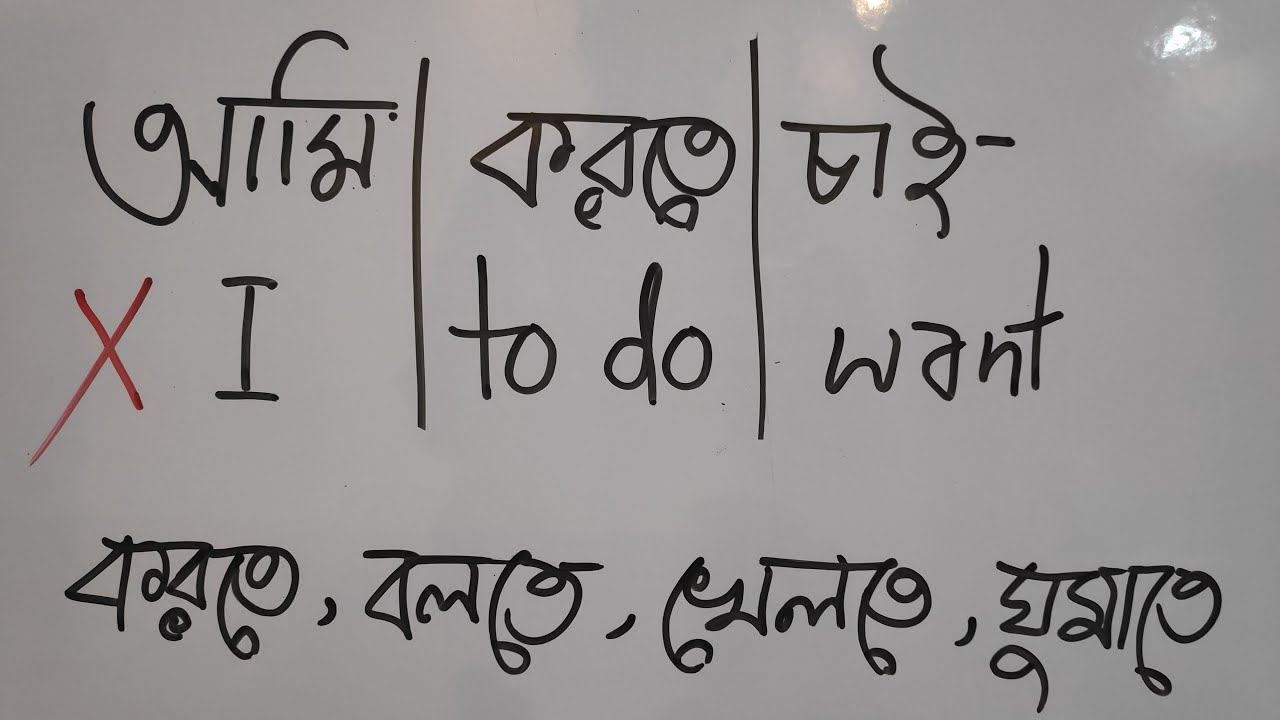 আমি | করতে | চাই-
X I | to do | want
করতে, বলতে, খেলতে, ঘুমাতে